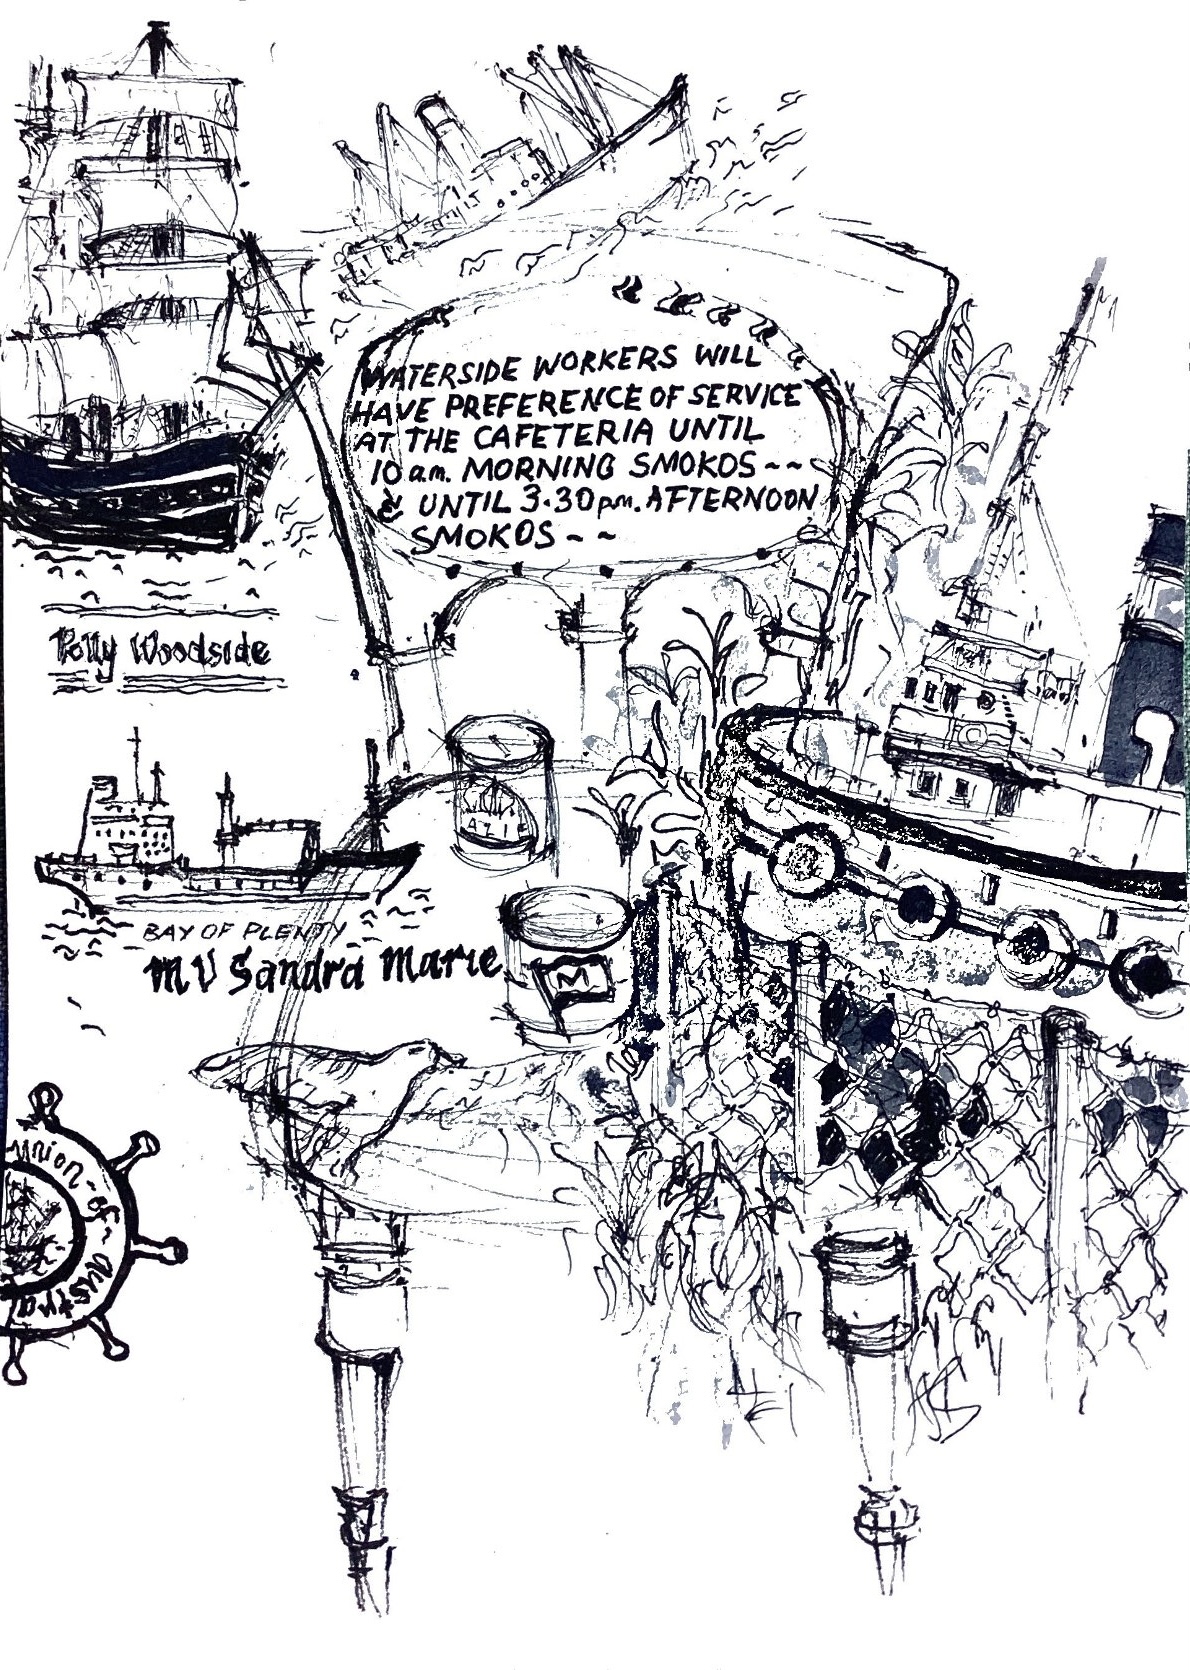 WATERSIDE WORKERS WILL
HAVE PREFERENCE OF SERVICE
AT THE CAFETERIA UNTIL
10 a.m. MORNING SMOKOS ~~
& UNTIL 3.30 p.m. AFTERNOON
SMOKOS ~ ~
Polly Woodside
BAY OF PLENTY
MV Sandra Marie
M
union-of-